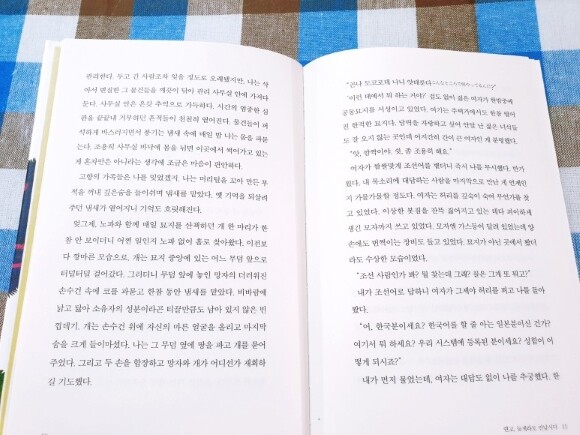 관리한다. 두고 긴 사람조차 잊을 정도로 오래됐지만, 나는 사
두다. 사무실 안은 온갖 추억으로 가득하다. 시간의 엄중한 심
판을 끝끝내 거부하던 흔적들이 천천히 옅어진다. 물건들이 바
삭하게 바스러지면서 풍기는 냄새 속에 매일 밤 나는 몸을 파묻
는다. 조용히 사무실 바닥에 몸을 뉘면 이곳에서 썩어가고 있는
게 혼자만은 아니라는 생각에 조금은 마음이 편안하다.
고향의 가족들은 나를 잊었겠지. 나는 머리털을 꼬아 만든 부
적을 꺼내 깊은숨을 들이쉬며 냄새를 맡았다. 옛 기억을 되살려
주던 냄새가 옅어지니 기억도 흐릿해진다.
엊그제, 노파와 함께 매일 묘지를 산책하던 개 한 마리가 한
참 안 보이더니 어쩐 일인지 노파 없이 홀로 찾아왔다. 이전보
다 깡마른 모습으로, 개는 묘지 중앙에 있는 어느 무덤 앞으로
터덜터덜 걸어갔다. 그러더니 무덤 앞에 놓인 망자의 더러워진
손수건 속에 코를 파묻고 한참 동안 냄새를 맡았다. 비바람에
낡고 닳아 소유자의 성분이라곤 티끌만큼도 남아 있지 않은 빈
껍데기. 개는 손수건 위에 자신의 마른 얼굴을 올리고 마지막
숨을 크게 들이마셨다. 나는 그 무덤 옆에 땅을 파고 개를 묻어
주었다. 그리고 두 손을 합장하고 망자와 개가 어디선가 재회하
길 기도했다.
"이런 데에서 뭐 하는 거야?" 겁도 없이 젊은 여자가 한밤중에
공동묘지를 서성이고 있었다. 여기는 주택가에서도 한참 떨어
진 한적한 묘지다. 담력을 자랑하고 싶어 안달 난 젊은 녀석들
도 잘 오지 않는 곳인데 어지간히 간이 큰 여자인 게 분명했다.
"앗, 깜짝이야. 쉿, 좀 조용히 해요."
여자가 항변하듯 조선어를 했더니 즉시 나를 무시했다. 반가
웠다. 내 목소리에 대답하는 사람을 마지막으로 만난 게 언제인
지 가물가물할 정도다. 여자는 허리를 깊숙이 숙여 무언가를 찾
고 있었다. 이상한 붓질을 잔뜩 짊어지고 있는 데다 괴이하게
생긴 모자까지 쓰고 있었다. 모자엔 가스등이 달려 있었는데 양
손에도 번쩍이는 장비를 들고 있었다. 묘지가 아닌 곳에서 봤더
라도 수상한 모습이었다.
"조선 사람인가 봐? 뭘 찾는데 그래? 짐은 그게 또 뭐고?"
내가 조선어로 답하니 여자가 그제야 허리를 펴고 나를 돌아
봤다.
"어, 한국분이세요? 한국어를 할 줄 아는 일본분이신 건가?
여기서 뭐 하세요? 우리 시스템에 등록된 분이세요? 성함이 어
떻게 되시죠?"
내가 먼저 물었는데, 여자는 대답도 없이 나를 추궁했다. 한